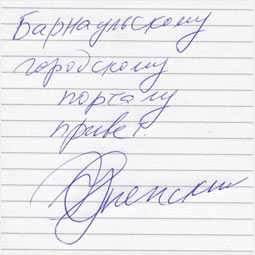 Барнаульскому
городскому
порталу
привет.
Успенский